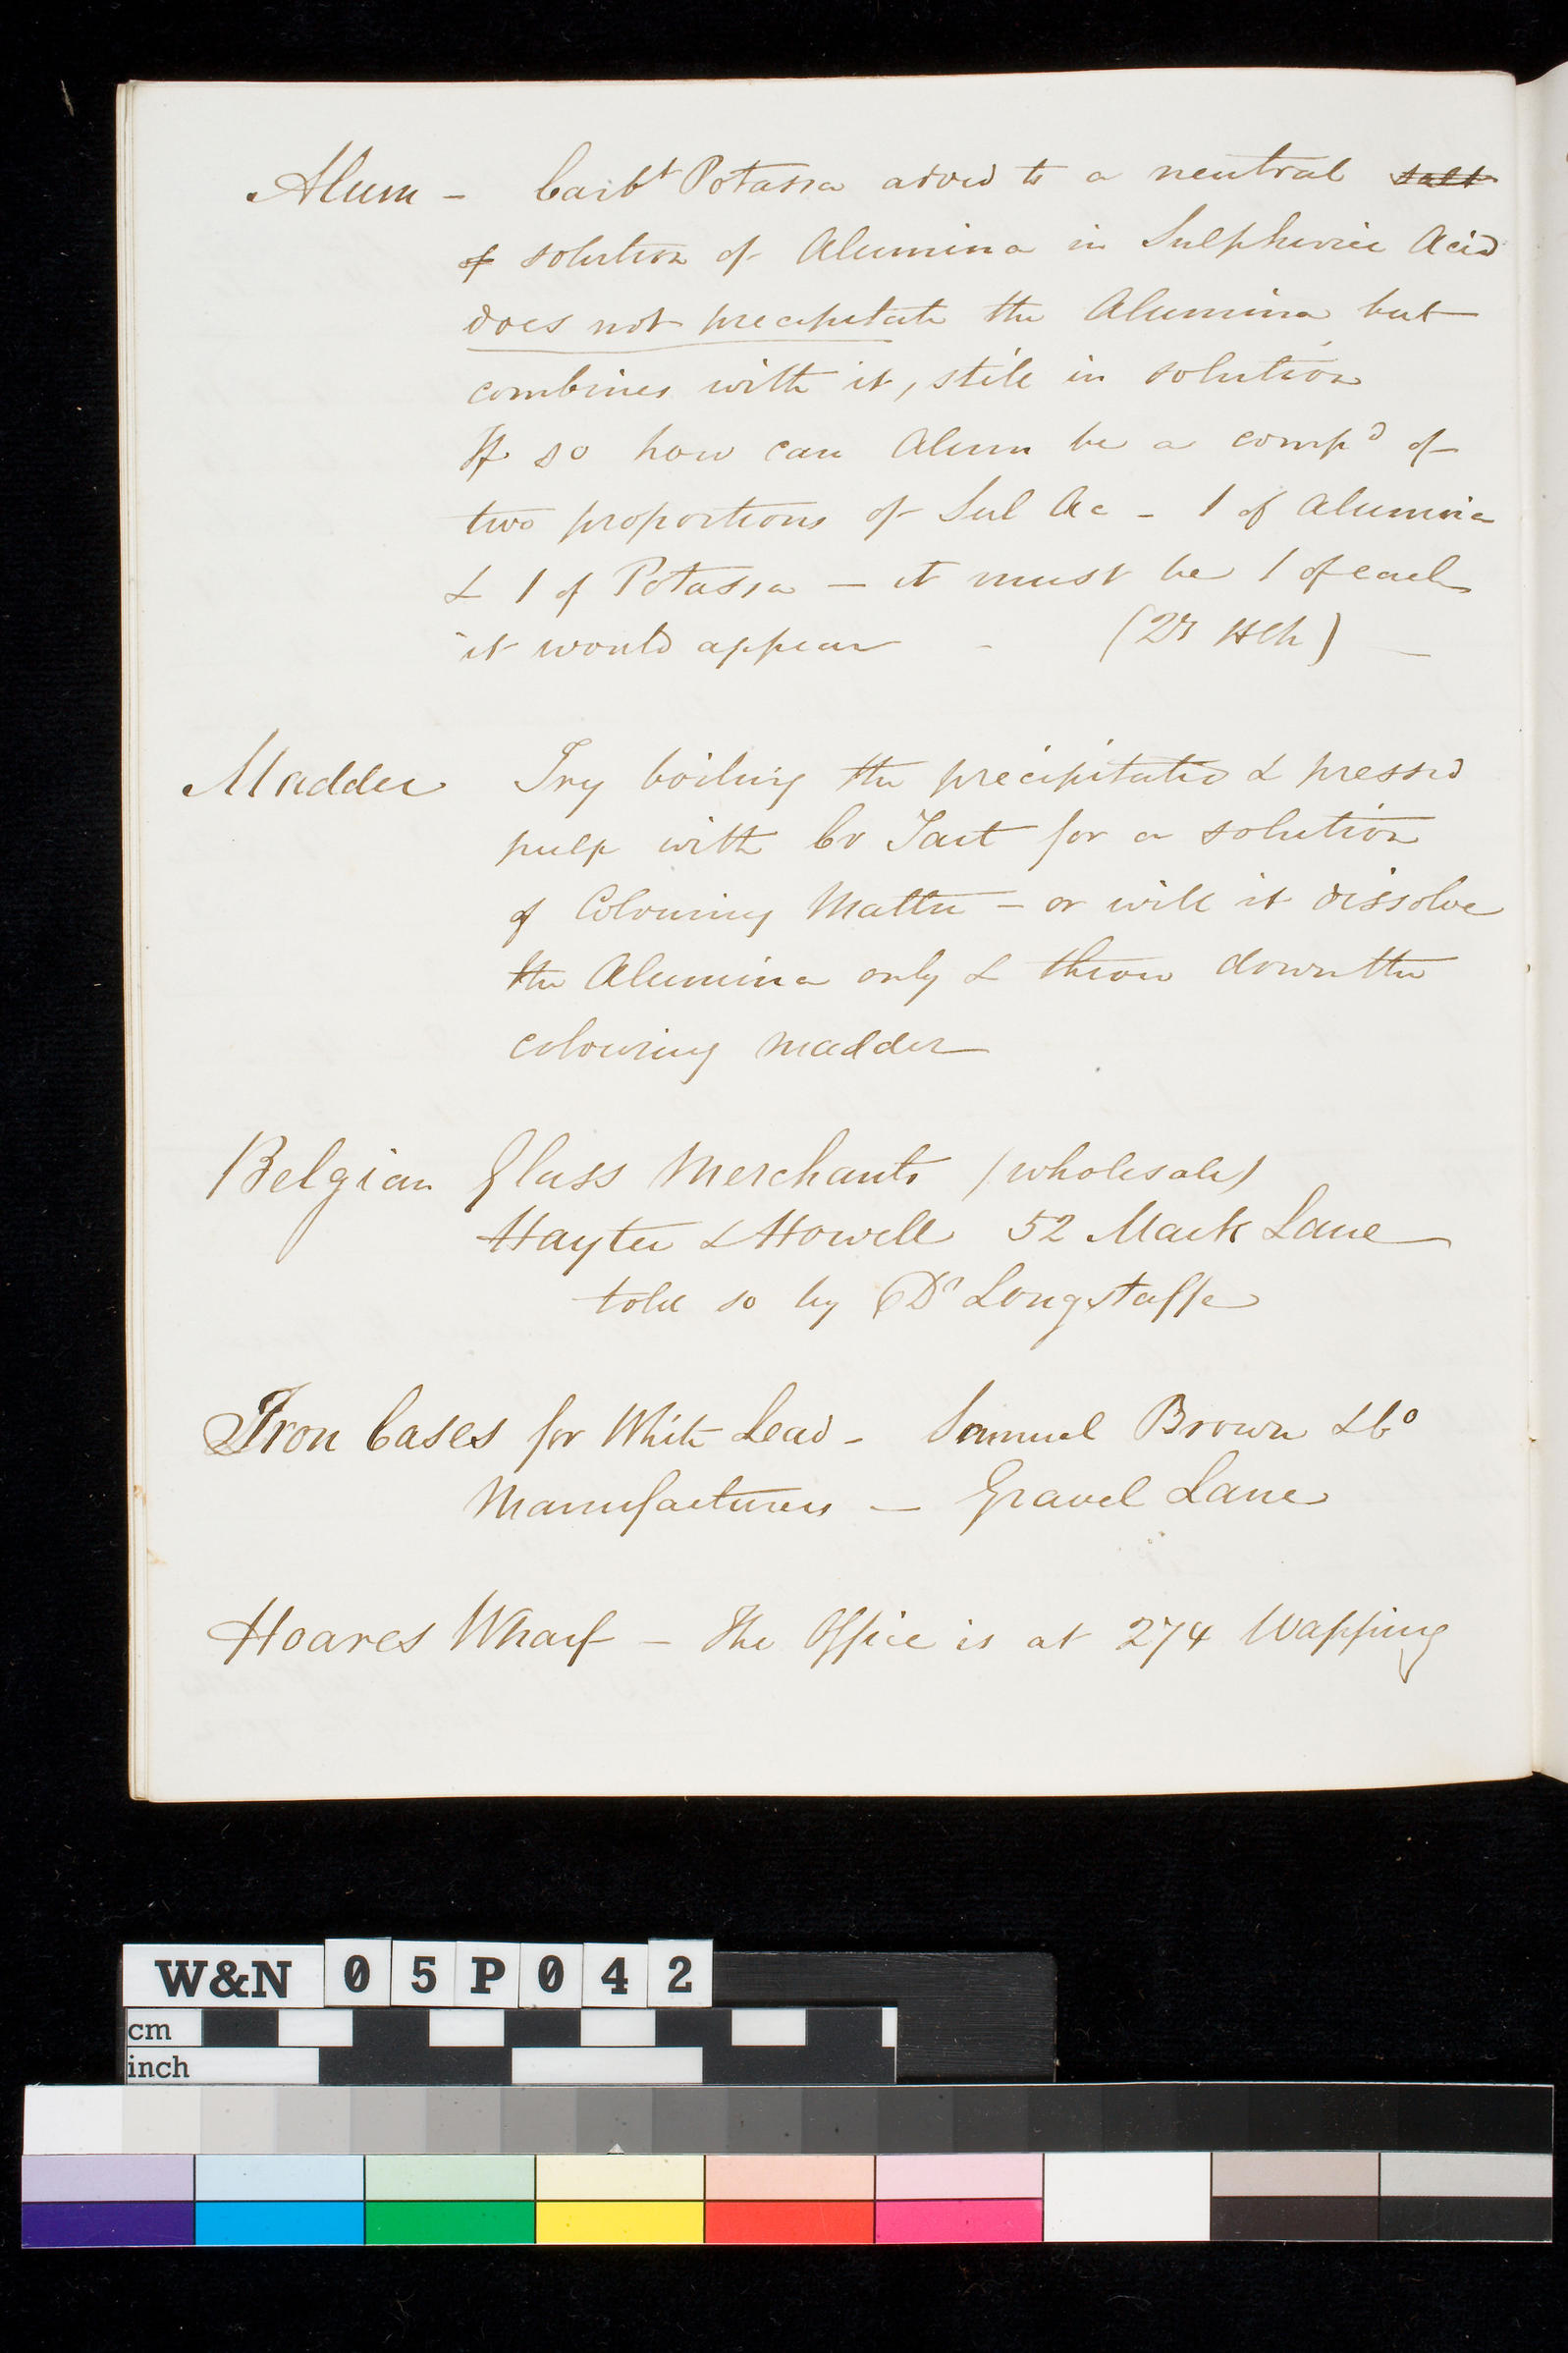 Alum - Carbt Potassa added to a neutral salt
of solution of Alumina in Sulphuric Acid
does not precipitate the Alumina but
combines with it, still in solution
If so how can Alum be a compd of
two proportions of Sul Ac - 1 of Alumina
& 1 of Potassa - it must be 1 of each
it would appear - -
Madder Try boiling the precipitated & pressed
pulp with Co Tart for a solution
of Colouring Matter - or will it dissolve
the Alumina only & throw down the
colouring madder
Belgian Glass Merchants (wholesale)
Hayter & Howell 52 Mark Lane
told so by Dr Longstaffe
Iron Cases for White Lead - Samuel Brown & Co
Manufacturers - Gravel Lane
Hoares Wharf - The Office is at 274 Wapping
W&N 05P042
cm
inch